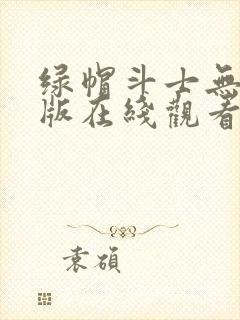 绿帽斗士無
版在綫觀看
袁碩